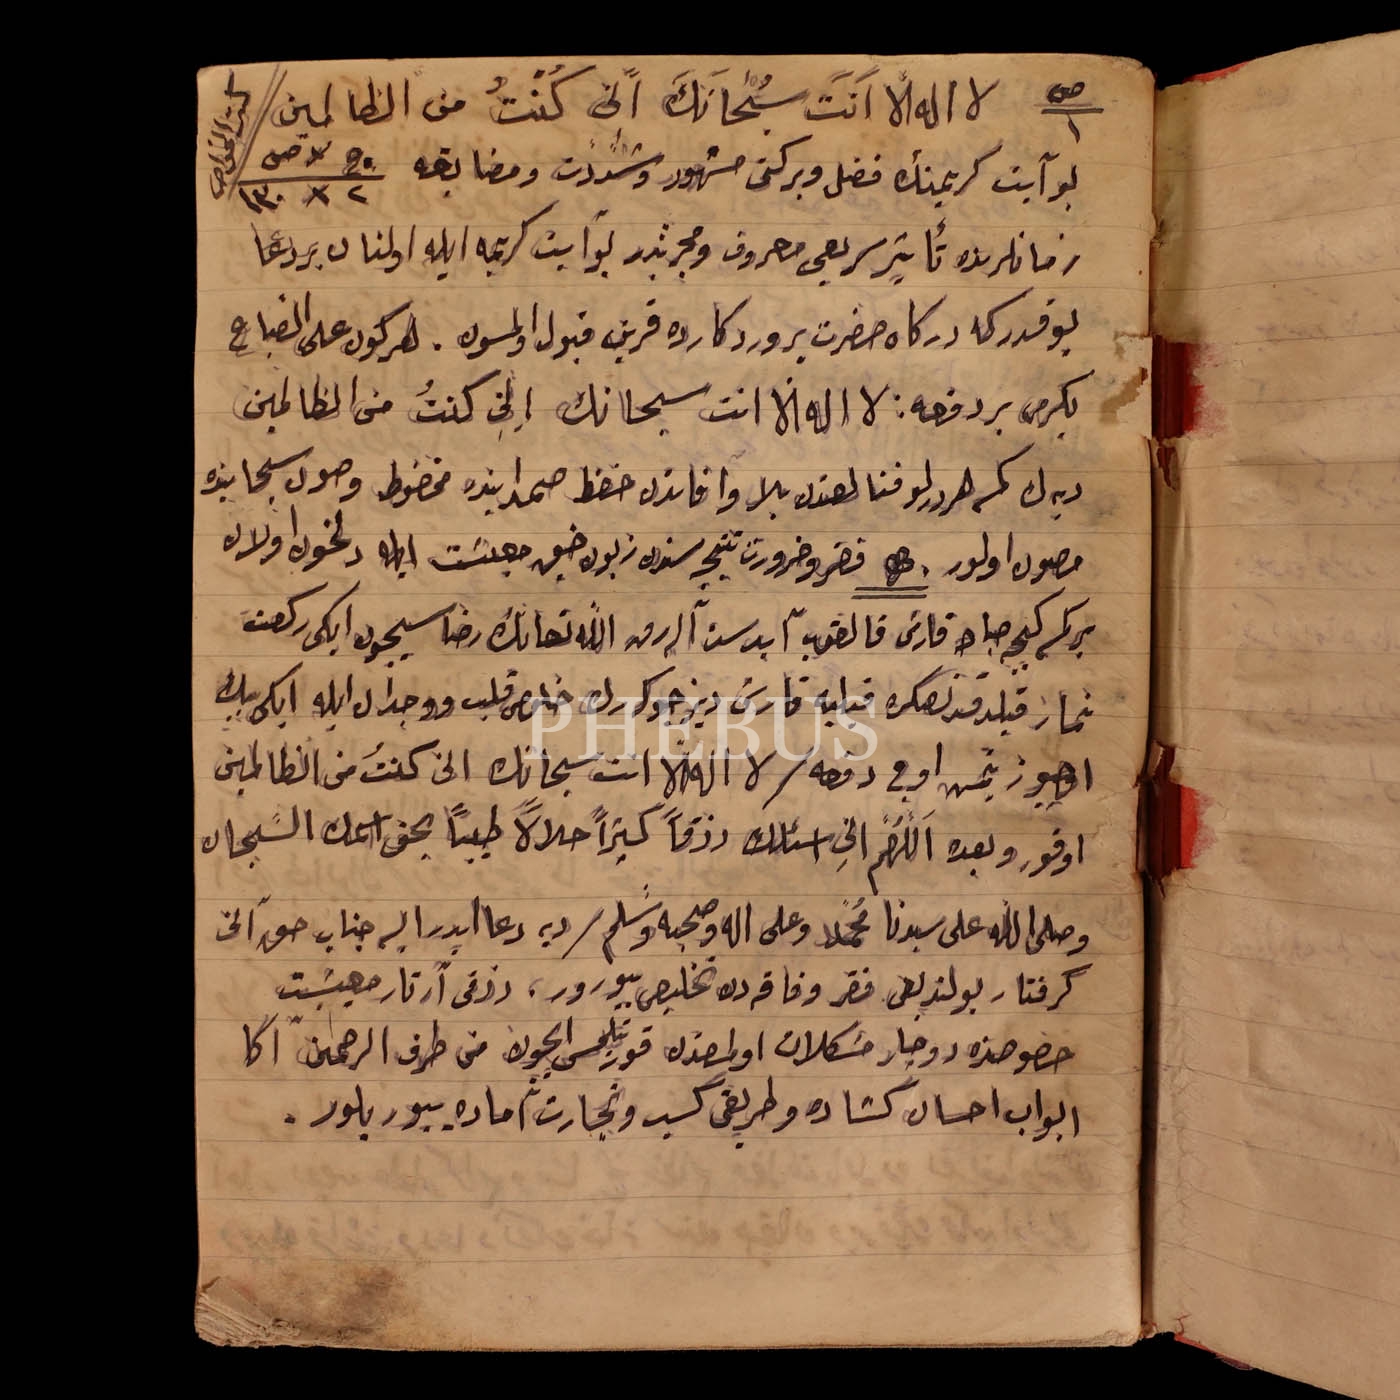 ص ١
لا اله الّا اَنَتَ سُبْحَانَكَ اَنّى كُنْتُ من الظالمين
كنز الخواص
ج ٢ ص ١٣٠
بو آيت كريمنك فضل وبركتى مشهور وشدّت ومضايقه
زمانلرنده تأثير سريعى معروف ومجربدر بو آيت كريمه ايله اولنان بر دعا
يوقدركه دركاه حضرت پروردكارده قرين قبول اولمسون . هر كون على الصباح
يكرمى بر دفعه : لا اله الّا انت سبحانك اِنِّى كنتُ من الظالمين
ديه ن كمسه هر درلو فنالقدن بلا وآفاتدن حفظ صمدانيده محفوظ وصون سبحانيده
مصون اولور . فقر وضرورت نتيجه سنده زبون ضيق معيشت ايله دلخون اولان
بر كمسه كيجه صباحه قارشى قالقوب آبدست آلهرق الله تعالنك رضاسيچون ايكى ركعت
نماز قيلدقدنصكره قبلهيه قارشى ديز چوكهرك خلوص قلب ووجدان ايله ايكى بيك
اوچيوز يتمش اوچ دفعه / لا اله الّا انت سبحانك انى كنتُ من الظالمين
اوقور وبعده اَللّهُمَّ انّى اسئلك رزقاً كثيراً حلالاً طيباً بحق اسمك السّبحان
وصلى الله على سيدنا محمّد وعلى اله وصحبه وسّلم / ديه دعا ايدر ايسه جناب حق آنى
كرفتار بولنديغى فقر وفاقه دن تخليص بيورور ، رزقى آرتار معيشت
خصوصنده دوچار مشكلات اولمقدن قورتلمسى ايچون من طرف الرحمن اكا
ابواب احسان كشاده وطريق كسب وتجارت آماده بيوريلور .
PHEBUS